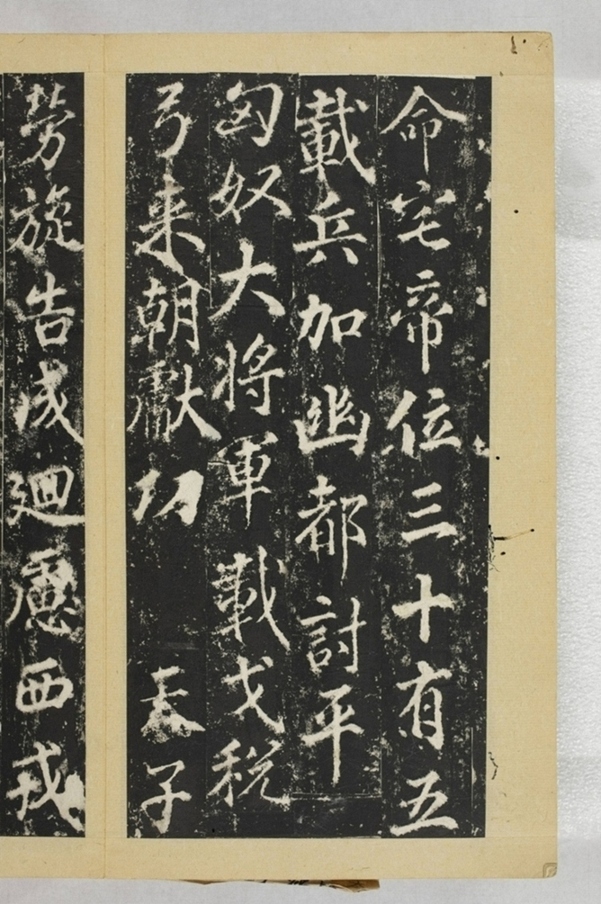 命宅帝位三十有五
載兵加幽都討平
匈奴大将軍載戈税
弓来朝獻功 天子
勞旋告成廻慮西戎